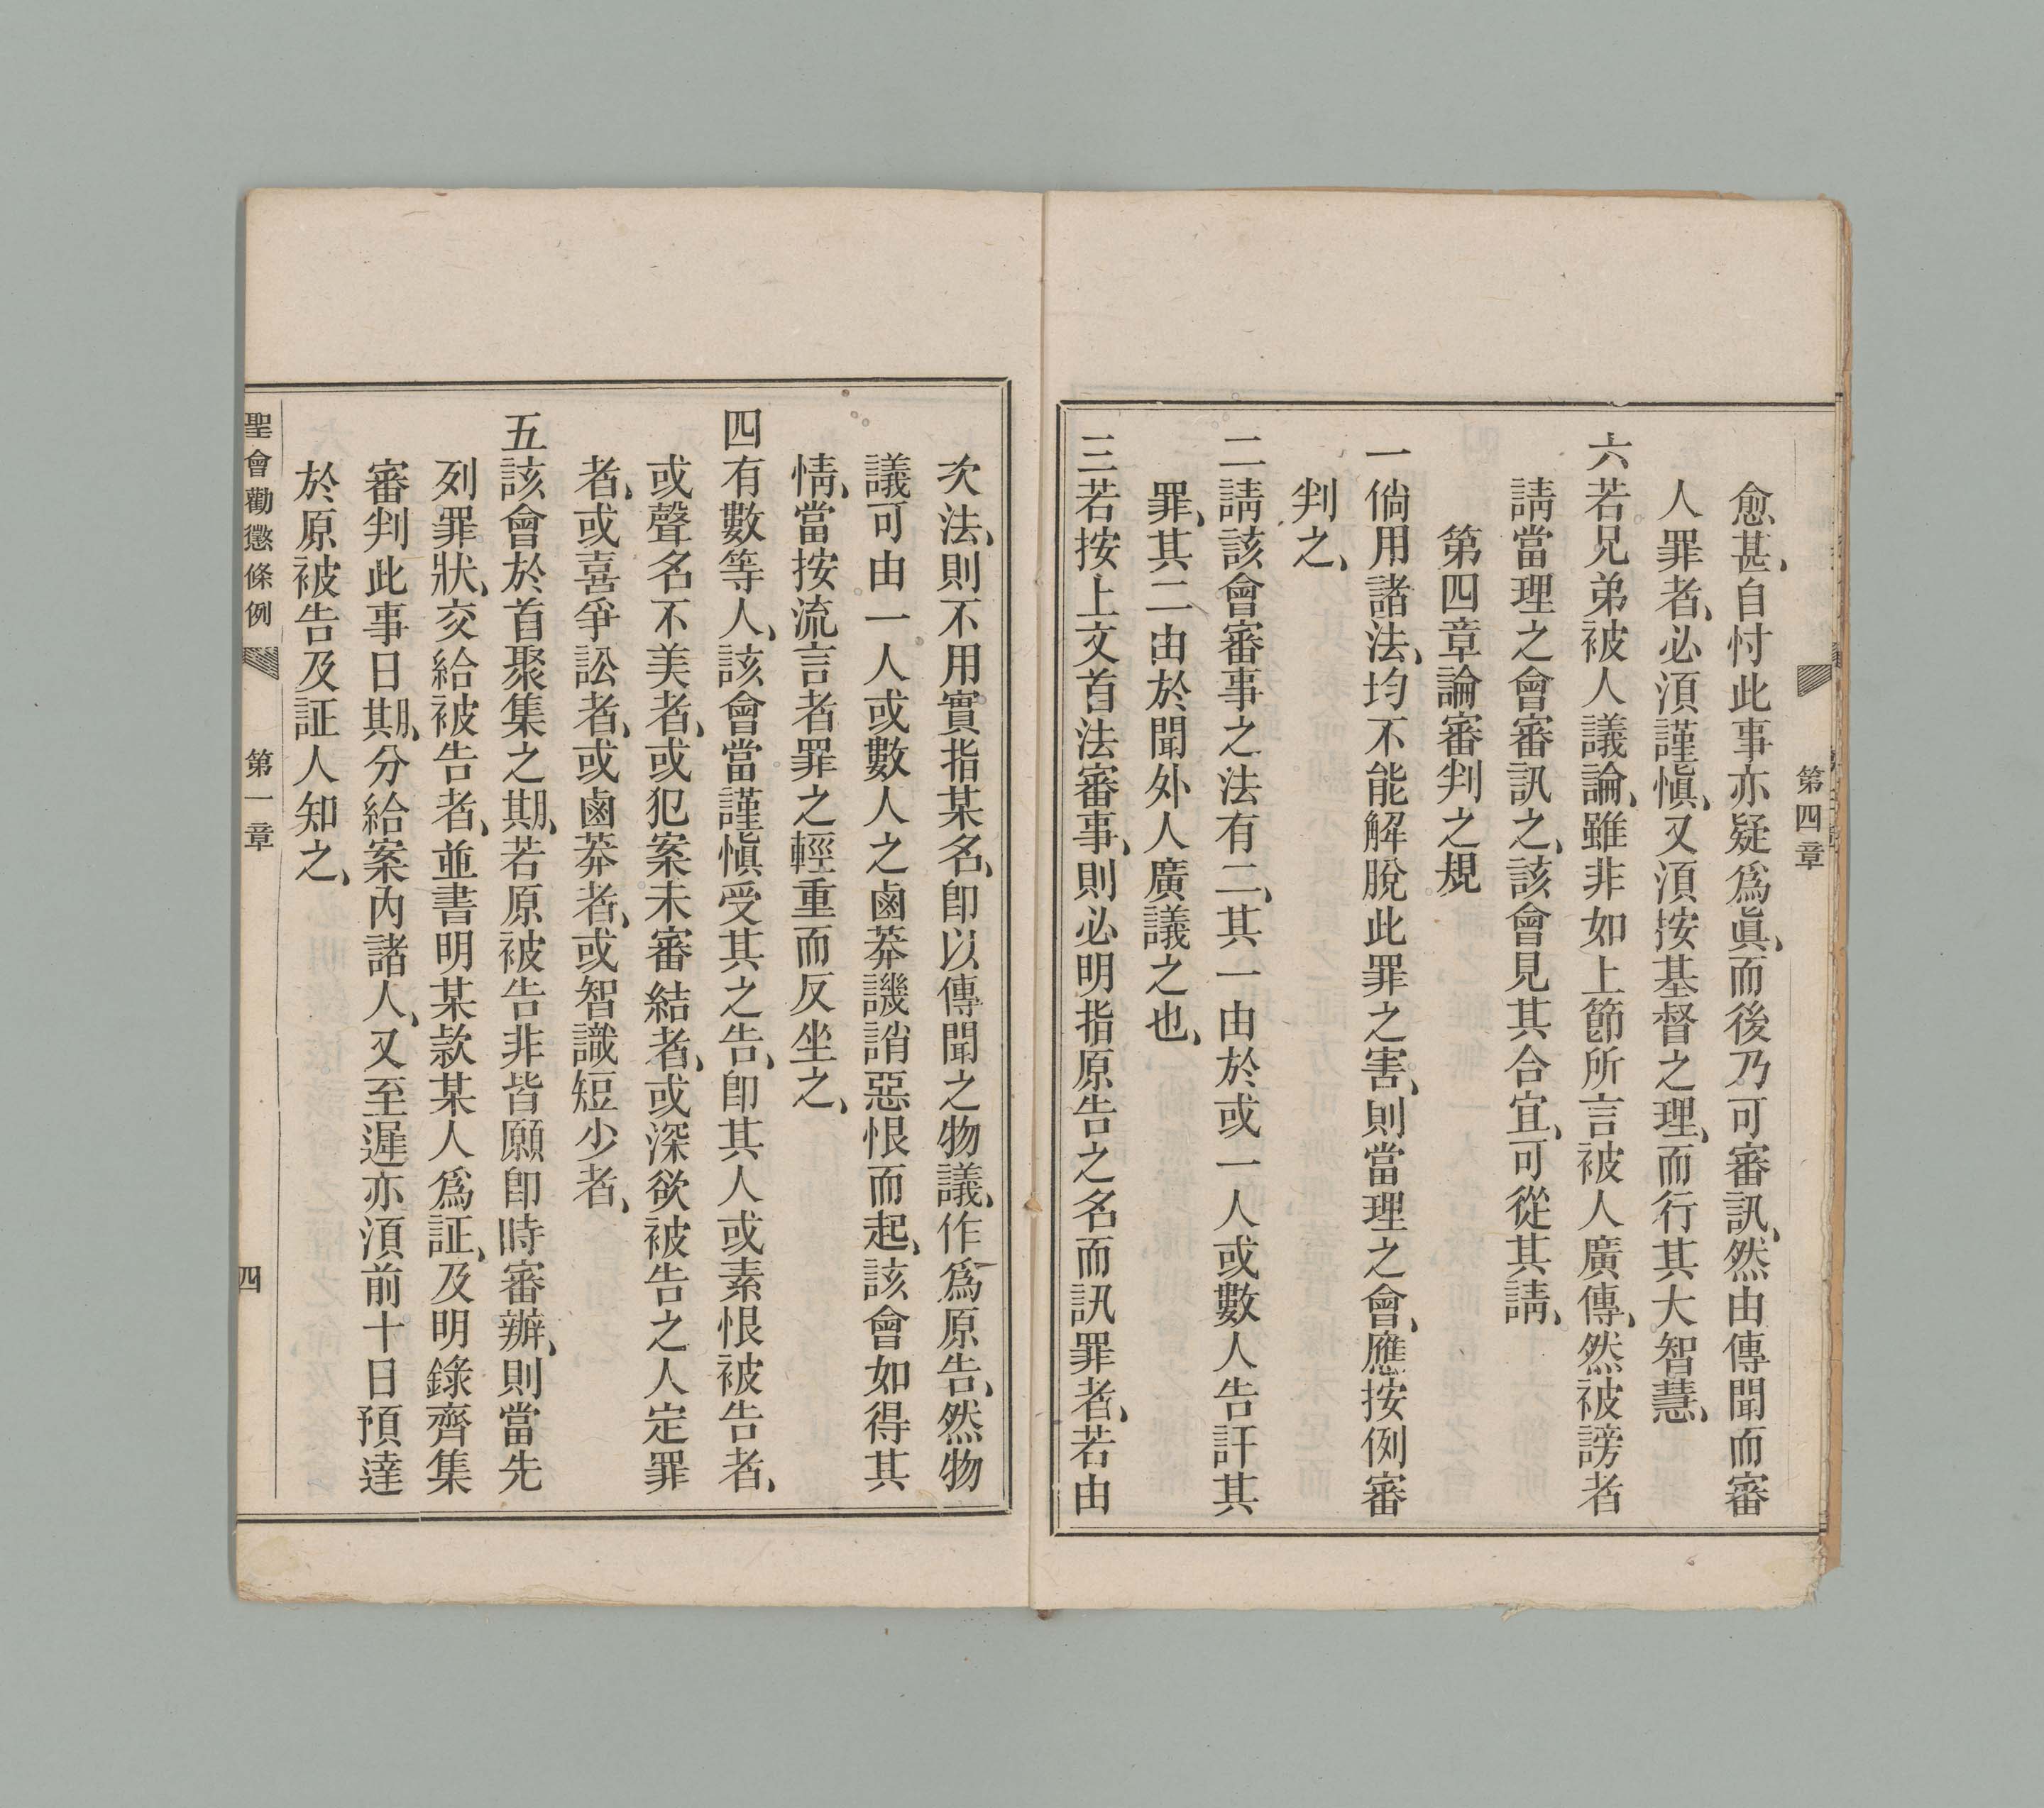 第四章
愈甚、自忖此事亦疑爲眞、而後乃可審訊、然由傳聞而審
人罪者、必須謹愼、又須按基督之理、而行其大智慧、
六若兄弟被人議論、雖非如上節所言被人廣傳、然被謗者
請當理之會審訊之、該會見其合宜、可從其請、
第四章論審判之規
一倘用諸法、均不能解脫此罪之害、則當理之會、應按例審
判之、
二請該會審事之法有二、其一由於或一人或數人告訐其
罪、其二由於聞外人廣議之也、
三若按上文首法審事、則必明指原告之名而訊罪者、若由
次法、則不用實指某名、卽以傳聞之物議、作爲原告、然物
議可由一人或數人之鹵莽譏誚惡恨而起、該會如得其
情、當按流言者罪之輕重而反坐之、
四有數等人、該會當謹愼受其之告、卽其人或素恨被告者、
或聲名不美者、或犯案未審結者、或深欲被告之人定罪
者、或喜爭訟者、或鹵莽者、或智識短少者、
五該會於首聚集之期、若原被告非皆願卽時審辦、則當先
列罪狀、交給被告者、並書明某款某人爲証、及明錄齊集
審判此事日期、分給案內諸人、又至遲亦須前十日預達
於原被告及証人知之、
聖會勸懲條例 第一章 四